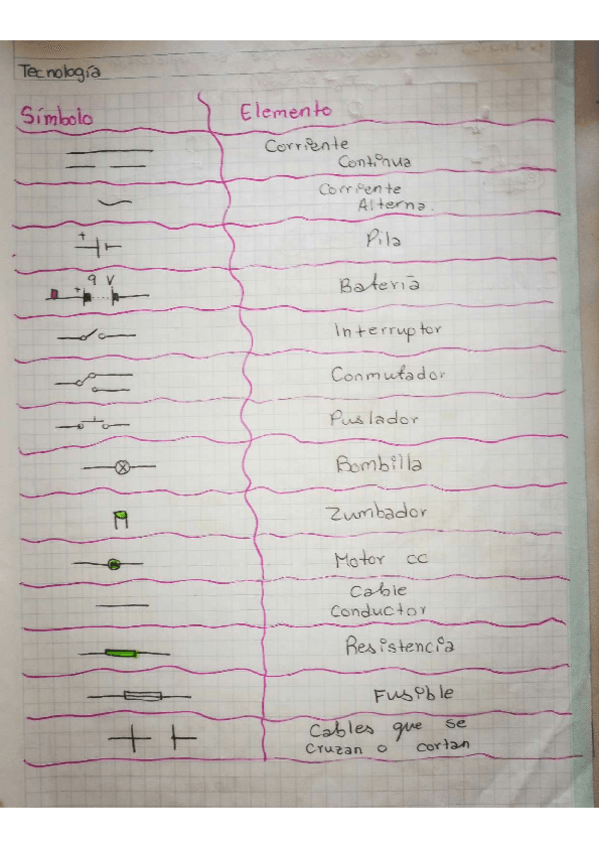 Tecnología
Símbolo Elemento
Corriente
Continua
Corriente
Alterna.
+
Pila
9 V
+
Batería
Interruptor
Conmutador
Puslador
Bombilla
Zumbador
Motor CC
Cable
Conductor
Resistencia
Fusible
Cables que se
cruzan o cortan